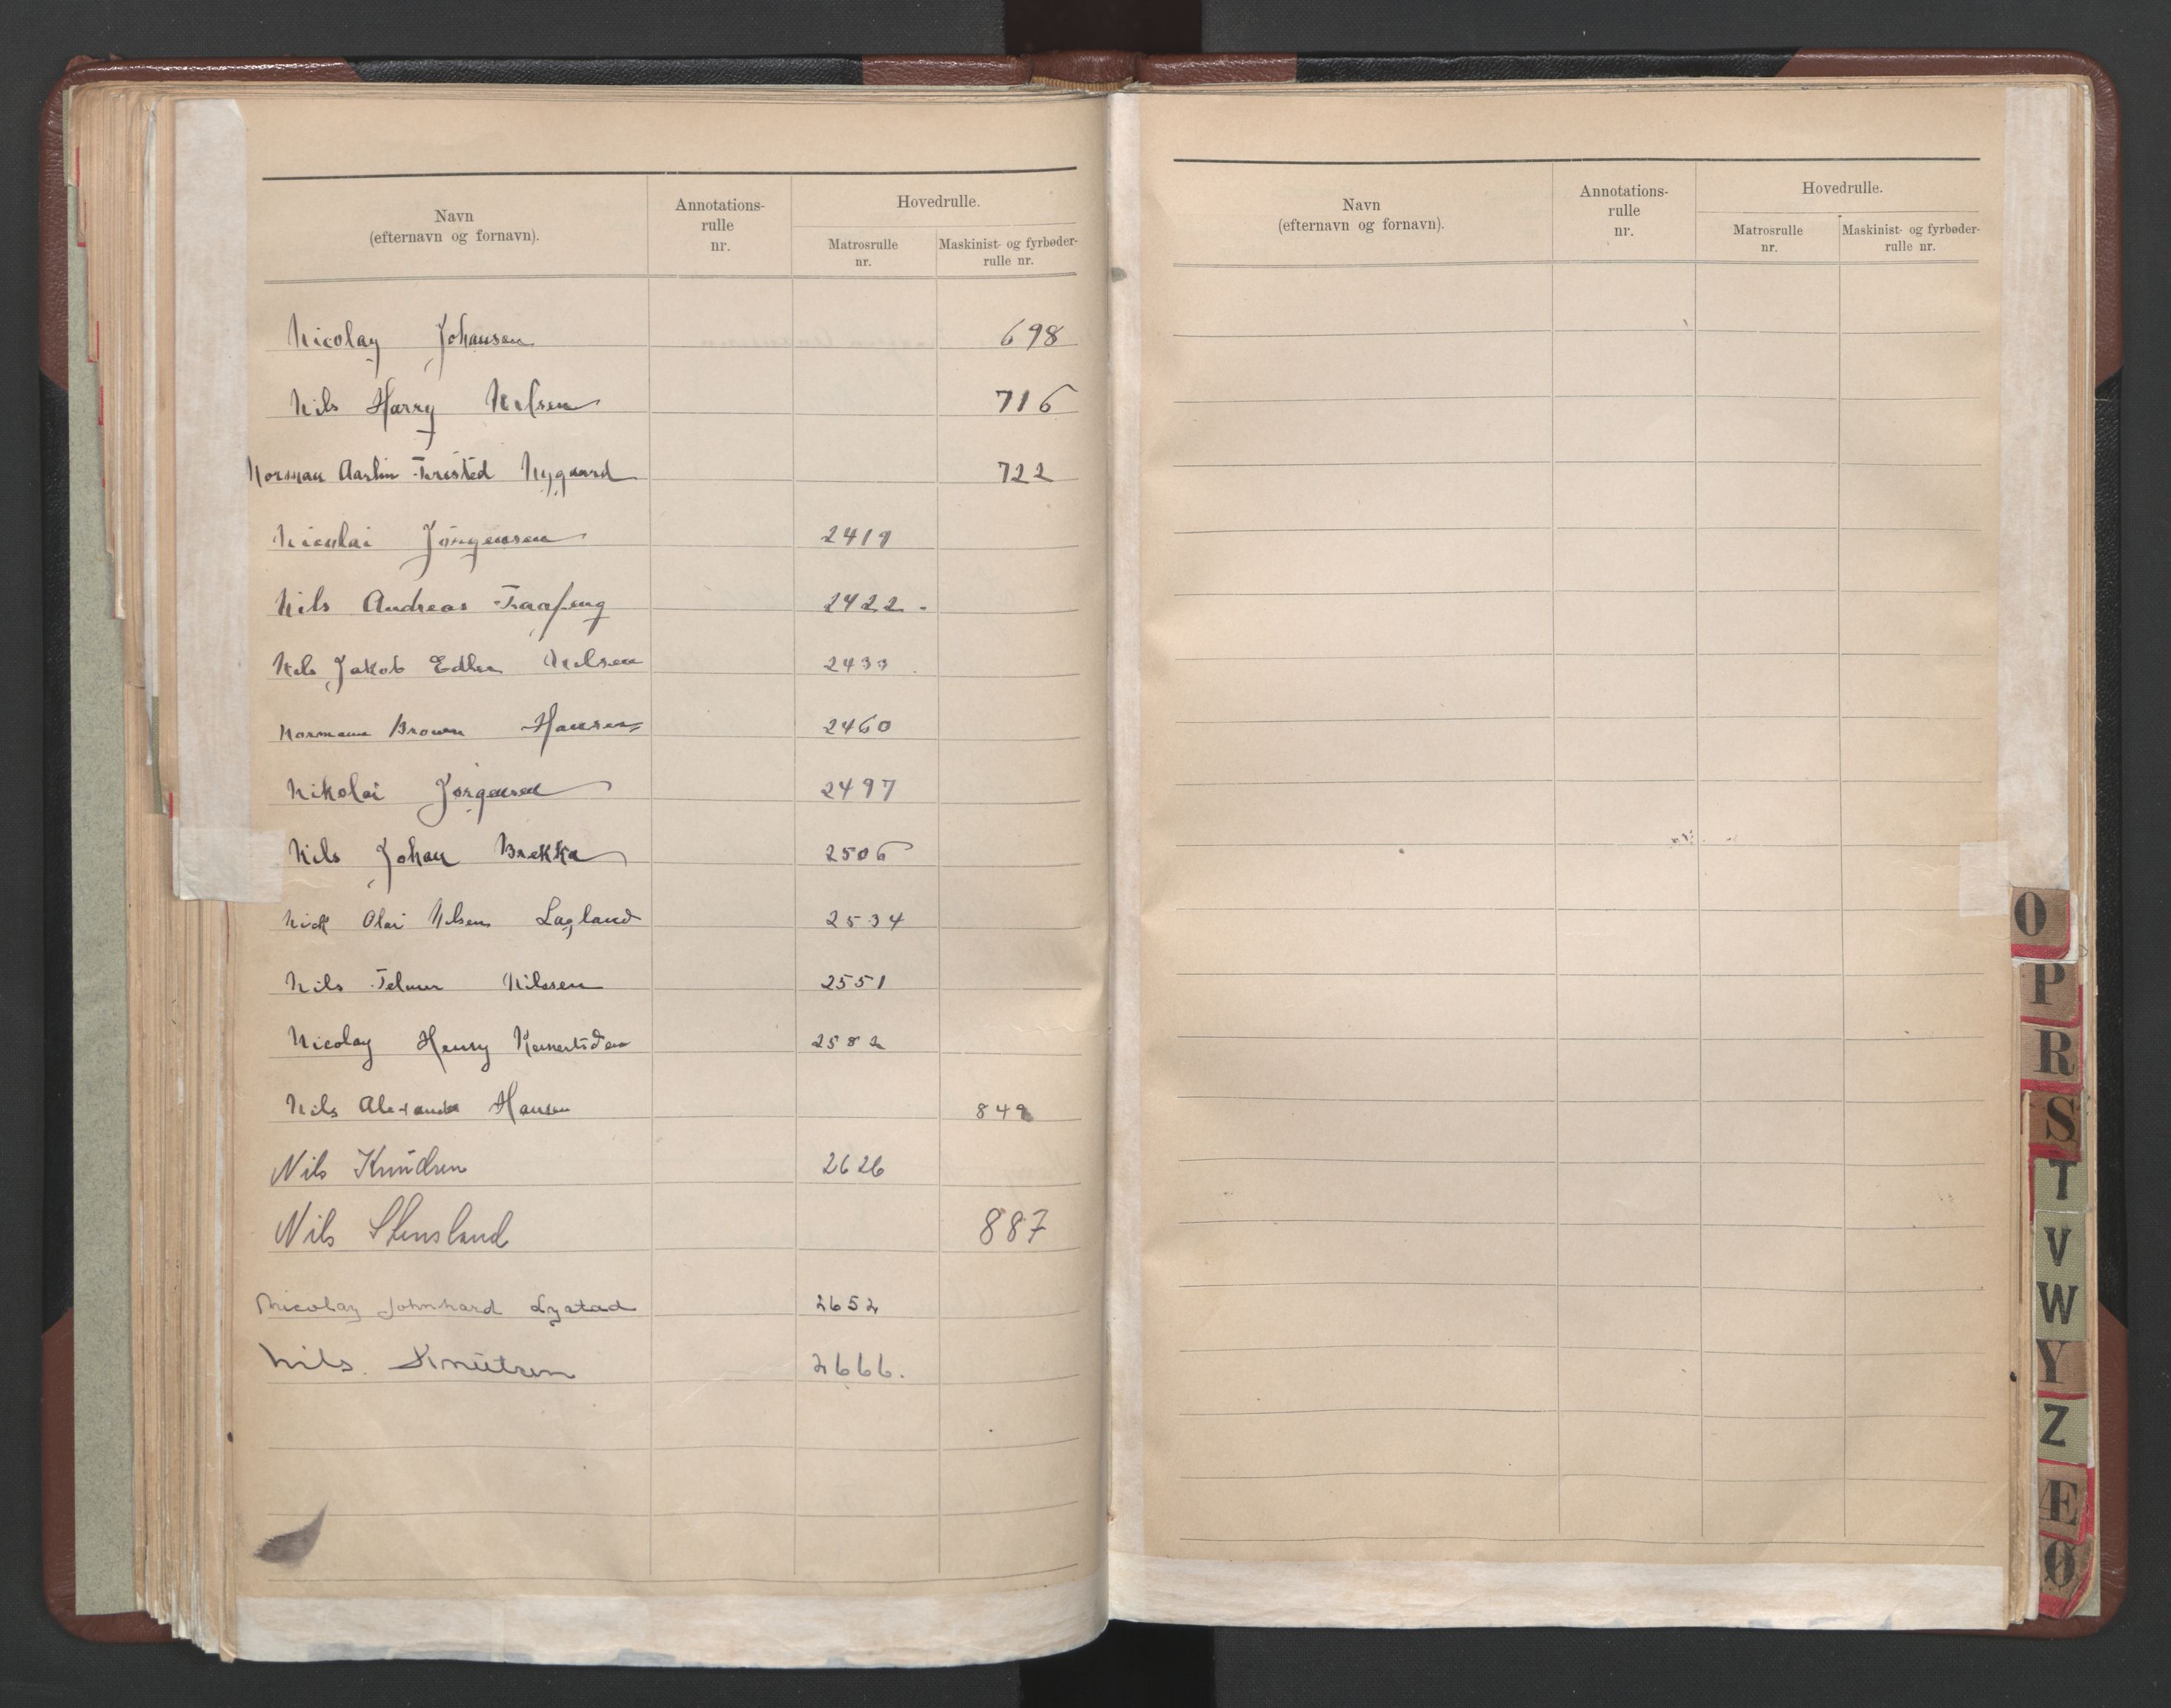 Navn
(efternavn og fornavn).
Annotations-
rulle
nr.
Hovedrulle.
Matrosrulle
nr.
Maskinist- og fyrbøder-
rulle nr.
Nicolay Johansen 698
Nils Harry Nilsen 716
Norman Tristed Nygaard 722
Nicolai Jörgensen 2419
Nils Andreas 2422.
Nils Jakob Nilsen 2433
Normann Brown Hansen 2460
Nikolai Jørgensen 2497
Nils Johan Brekka 2506
Nick Olai Nilsen Lagland 2534
Nils Telmer Nilssen 2551
Nicolay Henry 2582
Nils Alexander Hansen 849
Nils Knudsen 2626
Nils Stensland 887
Nicolay Johnhard Lystad 2652
Nils Knutsen 2666.
Navn
(efternavn og fornavn).
Annotations-
rulle
nr.
Hovedrulle.
Matrosrulle
nr.
Maskinist- og fyrbøder-
rulle nr.
O
P
R
S
T
V
W
Y
Z
Æ
Ø